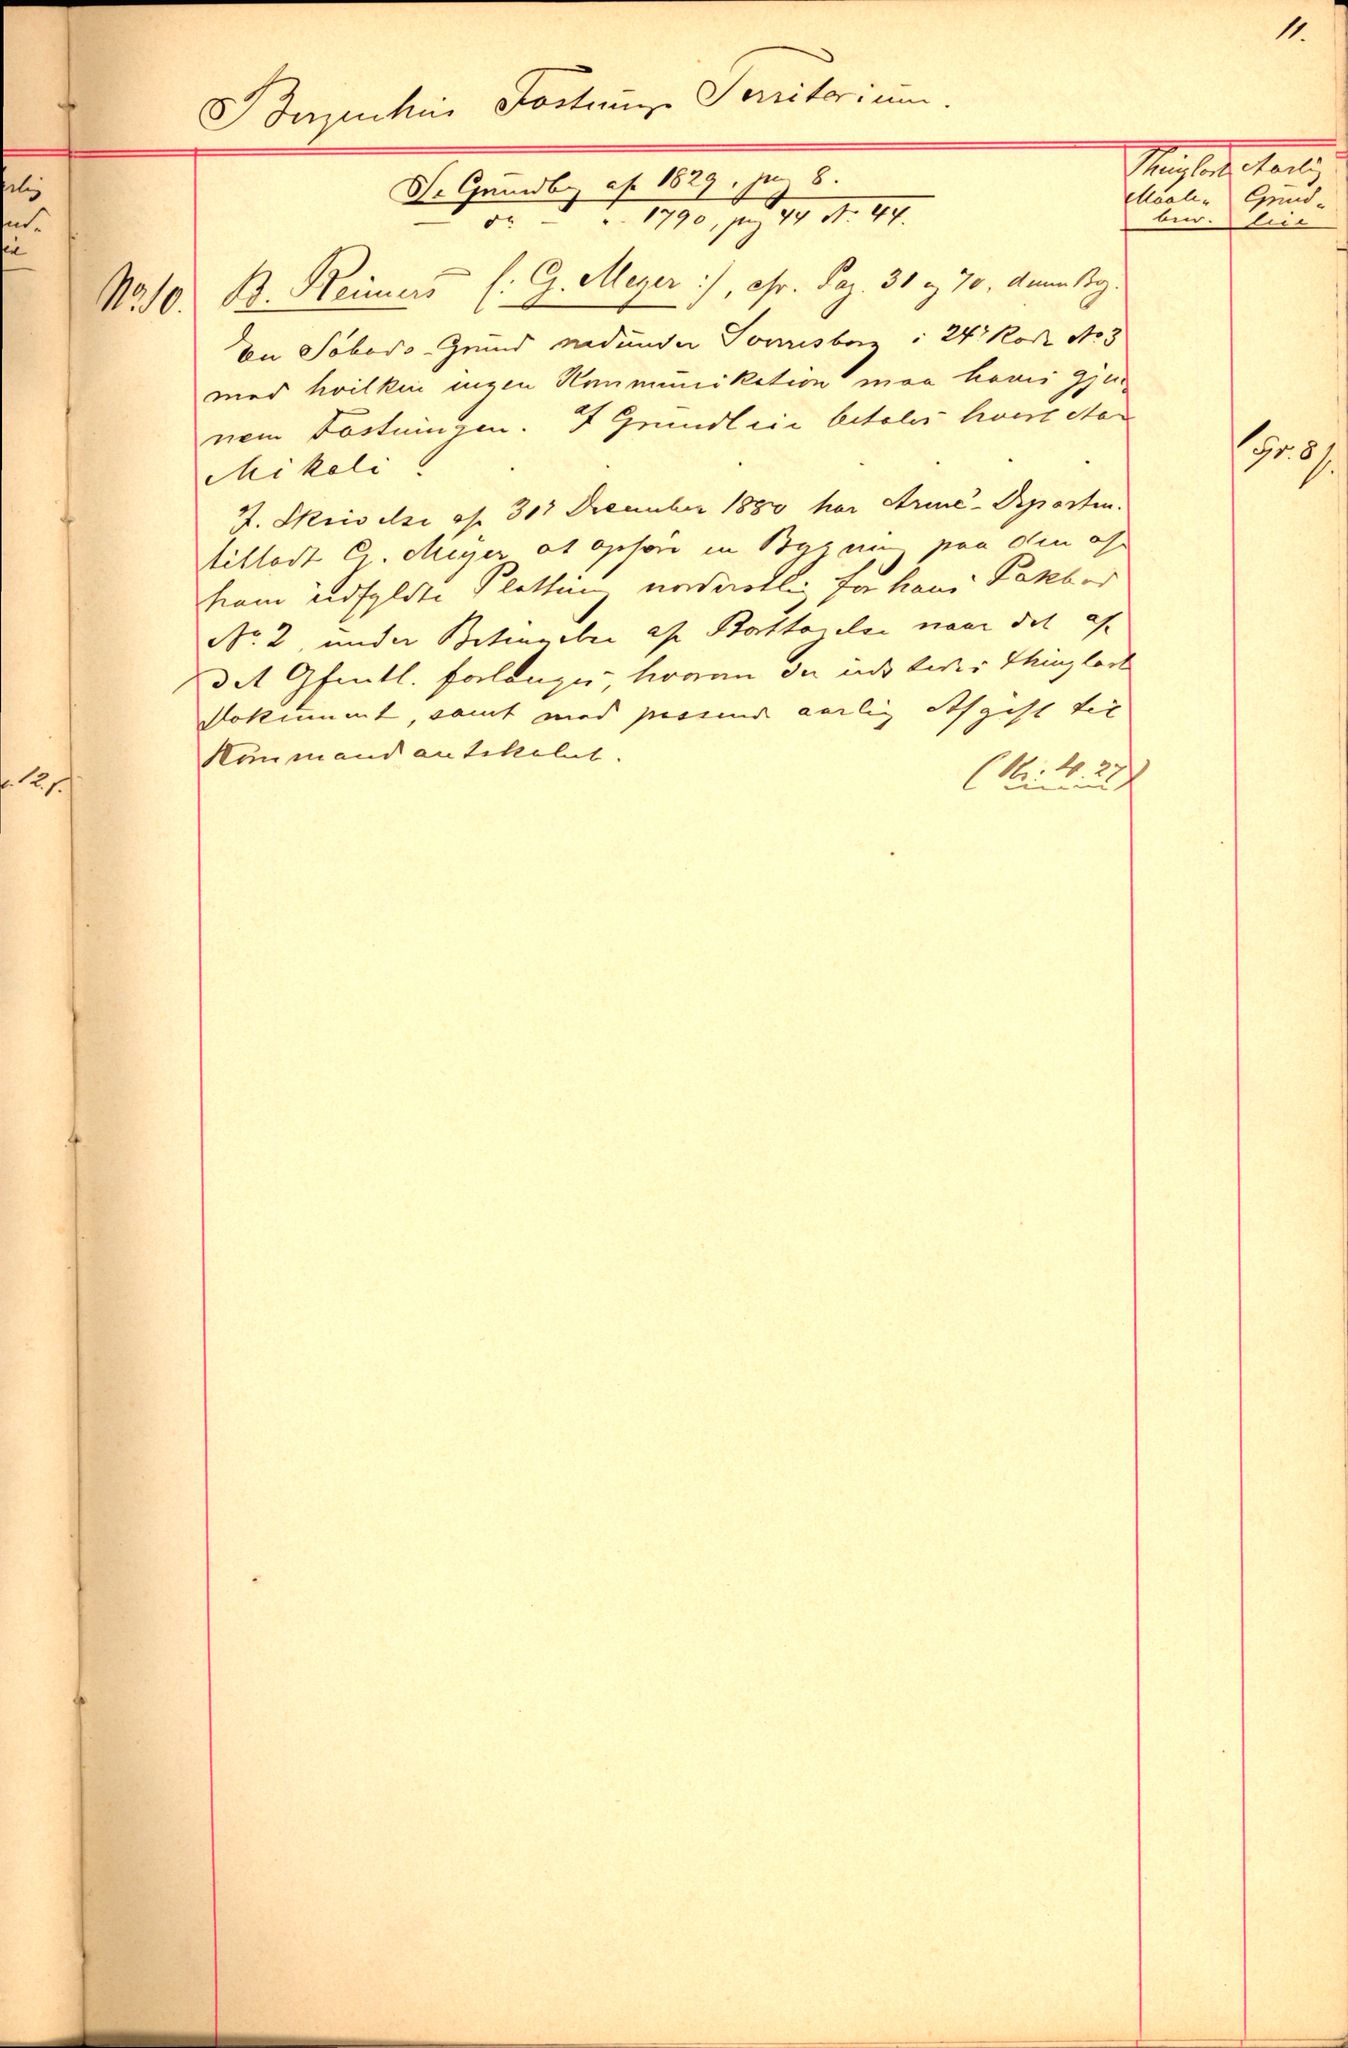 11.
Bergenhus Fæstnings Territorium.
Se Grundbog af 1829, pag 8.
— do — " 1790, pag 44 No 44.
Thinglæst Maale- brev.
Aarlig Grund- leie
No. 10. B. Reimers (: G. Meyer :), cfr. Pag. 31 og 70, denne Bog.
En Søbods-Grund nedunder Sverresborg i 24de Rode No 3
med hvilken ingen Kommunikation maa haves gjen-
nem Fæstningen. I Grundleie betales hvert Aar
Mikeli.
1 Gr. 8 ſ.
I Skrivelse af 31te December 1880 har Armé-Departem.
tilladt G. Meyer at opføre en Bygning paa den af
ham udfyldte Plætting nordvestlig for hans Pakbod
No. 2, under Betingelse af Borttagelse naar det af
det Offentl. forlanges, hvorom der udstedes thinglæst
Dokument, samt mod passende aarlig Afgift til
Kommandantskabet.
12 ſ.